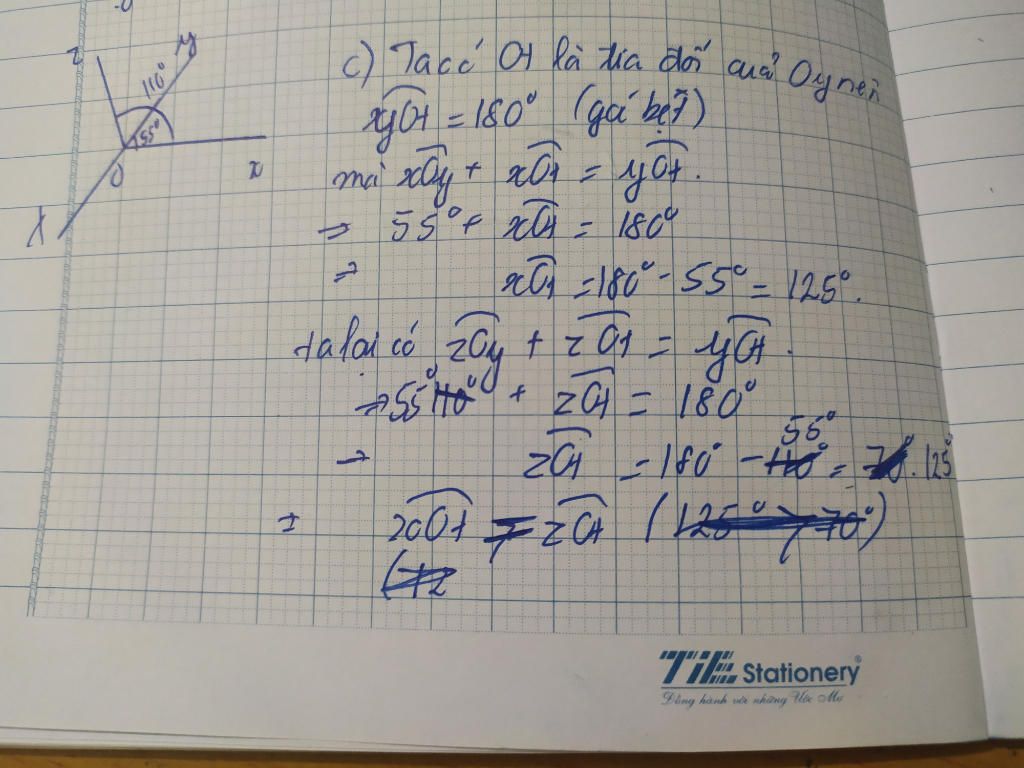 z
y
110°
55°
O
x
c) Ta có Ot là tia đối của Oy nên
xyOt = 180° (góc bẹt)
mà xOy + xOt = yOt.
⇒ 55° + xOt = 180°
⇒ xOt = 180° - 55° = 125°.
ta lại có zOy + zOt = yOt.
⇒ 55° 110° + zOt = 180°
55°
→ zOt = 180° - 110° = 70°. 125°
xOt = zOt (125° > 70°)
TiE Stationery®
Đồng hành với những Ước Mơ